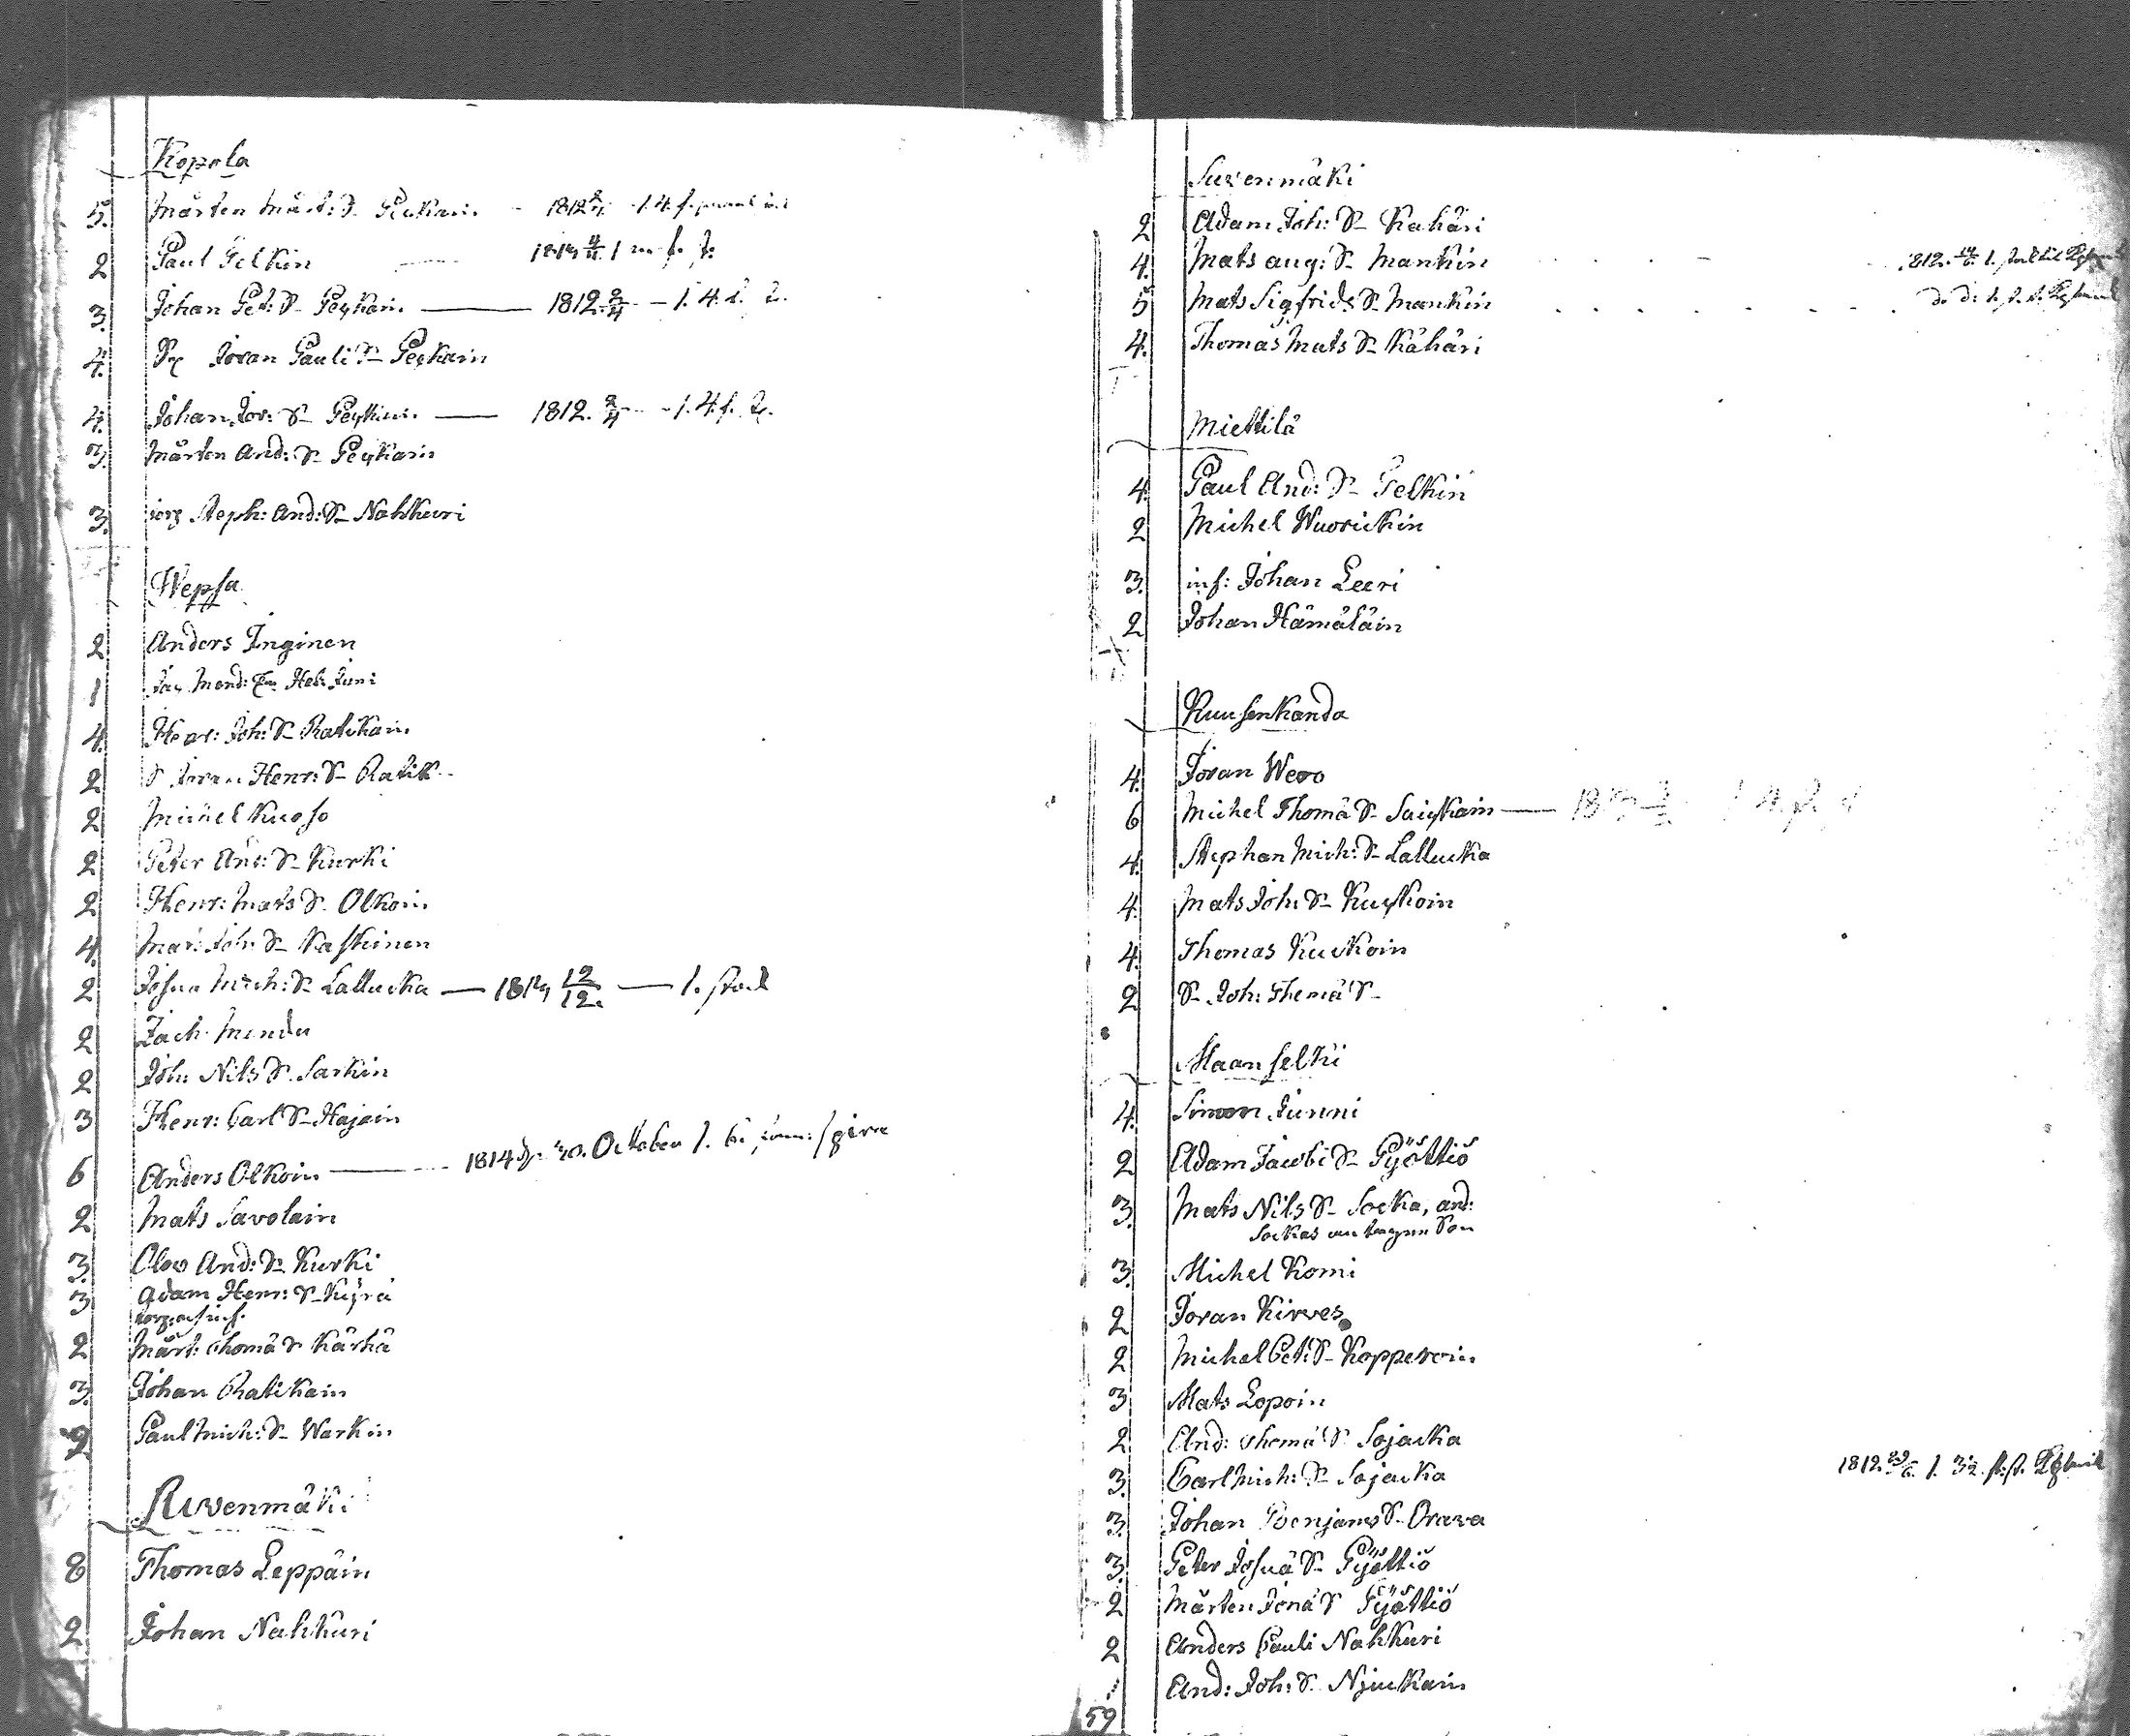 Kopola
5. Mårten Mårt: S- Peukain. - 1812 2/4 - 1. 4. f.
2 Paul Pelkin 1 m f. t.
3. Johan Pet: S- Peykain. — 1812. 2/4 - 1. 4. t.
4. Jöran Pauli S- Peykain
4. Johan Jör: S- Peykain. — 1812. 2/4 - 1. 4. f. t.
3. Mårten And: S- Peykain
3. Steph: And: S- Nahkuri
Wepsa
2 Anders Inginen
1
4. Henr: Joh: S- Ratikain.
2 S Jöran Henr: S- Ratik
2 Michel Kuoso
2 Peter And: S- Kurki
2 Henr: Mats S- Olkoin.
4. Joh: S- Kaskinen
2 Josua Mich: S- Lallucka — 12/12. — 1.
2 Zach
2 Joh: Nils S. Sarkin
3 Henr: Carl S- Hajain
6 Anders Olkoin — 1814 October 1.
2 Mats Savolain
3. Olov And: S- Kurki
3. Adam Henr: S- Kyrö
2 Mårt: Thomä S- Kärhä
3. Johan Ratikain
2 Paul Mich: S- Warkin
Ruvenmäki
8 Thomas Leppäin
2 Johan Nahkuri
Suvenmäki
2 Adam Joh: S- Kahäri
4. Mats Aug: S- Mankin . . . 1812. 1.
5 Mats Sigfrids S- Mankin . . . . . . . . d: d:
4. Thomas Mats S- Kähäri
Miettilä
4. Paul And: S- Pelkin
2 Michel Wuorickin
3. inh: Johan Leeri
2 Johan Hämäläin
Kuusenkanda
4. Jöran Wero
6 Michel Thomä S- Suiykain —
4. Stephan Mich: S- Lallucka
4. Mats Joh: S- Kuykoin
4. Thomas Kuckoin
2 S- Joh: Thomä S-
Maanselki
4. Simon Junni
2 Adam Jacobi S- Pyöttiö
3. Mats Nils S- Socka, and:
Sockas antagne Son
3. Michel Komi
2 Jöran Kirves
2 Michel Pet: S- Kopperoin
3 Mats Lopoin
2 And: Thomä S- Sojacka
3. Carl Mich: S- Sojacka 1812. 1. 3½
3. Johan Benjams S- Orava
3. Peter Josuä S- Pyöttiö
2 Mårten Jonä S Pyöttiö
2 Anders Pauli Nahkuri
And: Joh: S- Njukkain
59